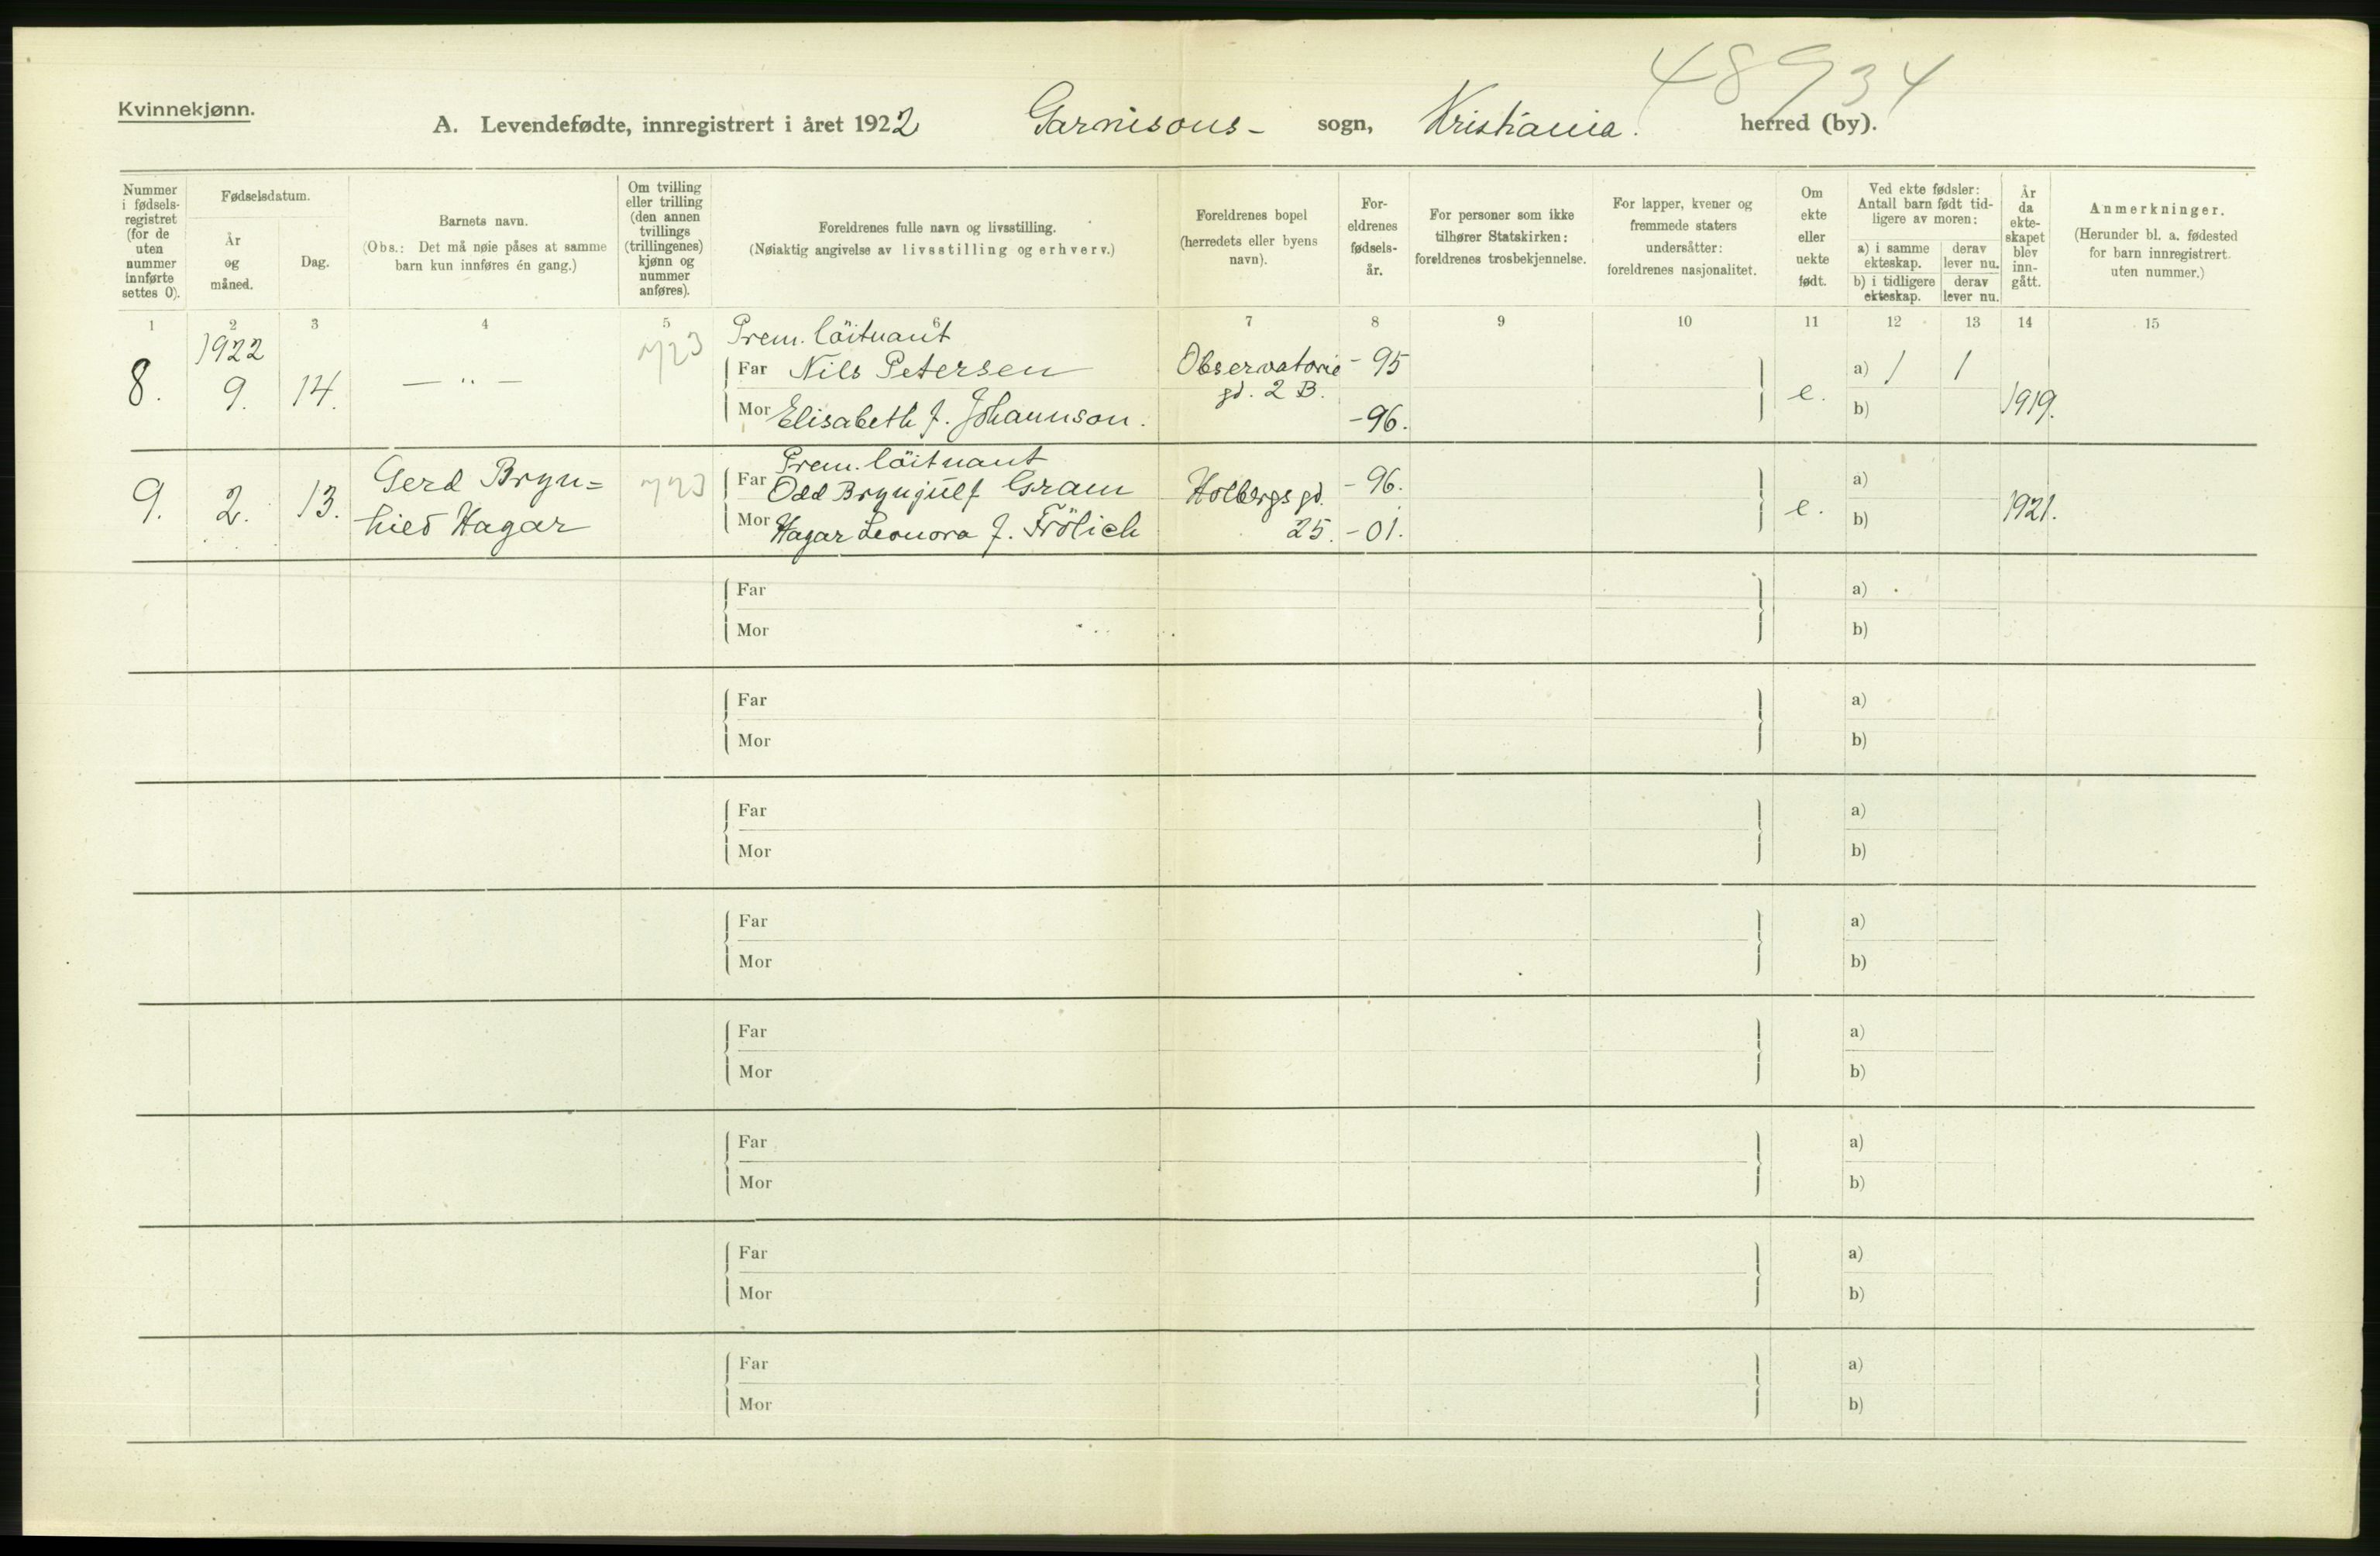 48934
Kvinnekjønn.
A. Levendefødte, innregistrert i året 1922 Garnisons- sogn, Kristiania. herred (by).
Nummer
i fødsels-
registret
(for de
uten
nummer
innførte
settes 0).
Fødselsdatum.
År
og
måned.
Dag.
Barnets navn.
(Obs.: Det må nøie påses at samme
barn kun innføres én gang.)
Om tvilling
eller trilling
(den annen
tvillings
(trillingenes)
kjønn og
nummer
anføres).
Foreldrenes fulle navn og livsstilling.
(Nøiaktig angivelse av livsstilling og erhverv.)
Foreldrenes bopel
(herredets eller byens
navn).
For-
eldrenes
fødsels-
år.
For personer som ikke
tilhører Statskirken:
foreldrenes trosbekjennelse.
For lapper, kvener og
fremmede staters
undersåtter:
foreldrenes nasjonalitet.
Om
ekte
eller
uekte
født.
Ved ekte fødsler:
Antall barn født tid-
ligere av moren:
a) i samme
ekteskap.
derav
lever nu.
b) i tidligere
ekteskap.
derav
lever nu.
År
da
ekte-
skapet
blev
inn-
gått.
Anmerkninger.
(Herunder bl. a. fødested
for barn innregistrert
uten nummer.)
1 2 3 4 5 6 7 8 9 10 11 12 13 14 15
8. 1922
9. 14. — " —
Prem. löitnant
Far Nils Petersen
Mor Elisabeth f. Johannson.
Observatorie
gd. 2 B.
- 95
- 96.
e.
a) 1 1
b)
1919.
9. 2. 13. Gerd Bryn=
hild Hagar
Prem. löitnant
Far Odd Brynjulf Gram
Mor Hagar Leonora f. Frölich
Holbergs gd.
25.
- 96.
- 01.
e.
a)
b)
1921.
Far a)
Mor b)
Far a)
Mor b)
Far a)
Mor b)
Far a)
Mor b)
Far a)
Mor b)
Far a)
Mor b)
Far a)
Mor b)
Far a)
Mor b)